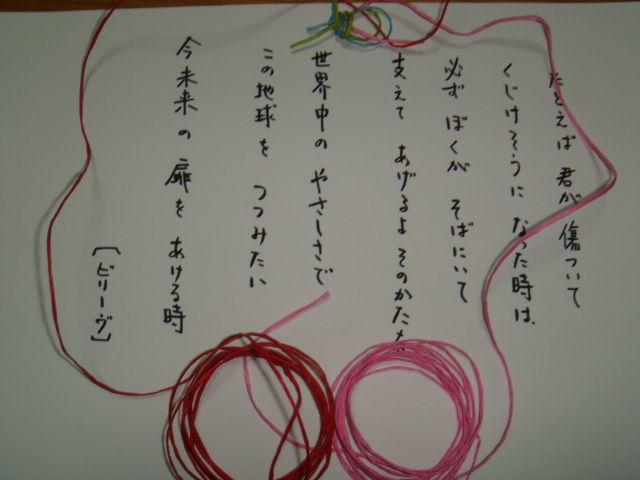 たとえば 君が 傷ついて
くじけそうに なった時は、
必ず ぼくが そばにいて
支えて あげるよ そのかたを
世界中の やさしさで
この地球を つつみたい
今未来の 扉を あける時
［ビリーヴ］